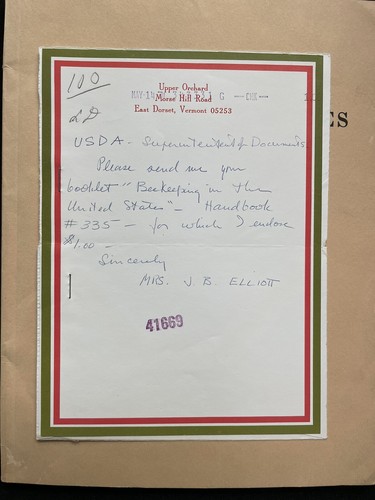 100
Upper Orchard
Morse Hill Road
East Dorset, Vermont 05253
MAY-14
G — CHK —
ES
USDA - Superintendent of Documents
Please send me your
booklet "Beekeeping in the
United States" - Handbook
#335 - for which I enclose
$1.00 -
Sincerely
MRS. J. B. ELLIOTT
41669